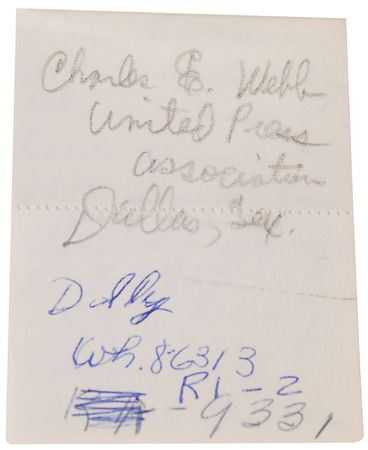 Charles E. Webb
United Press
Association
Dallas, Tex.
Dolly
Wh. 8-6313
RI-2
-9331